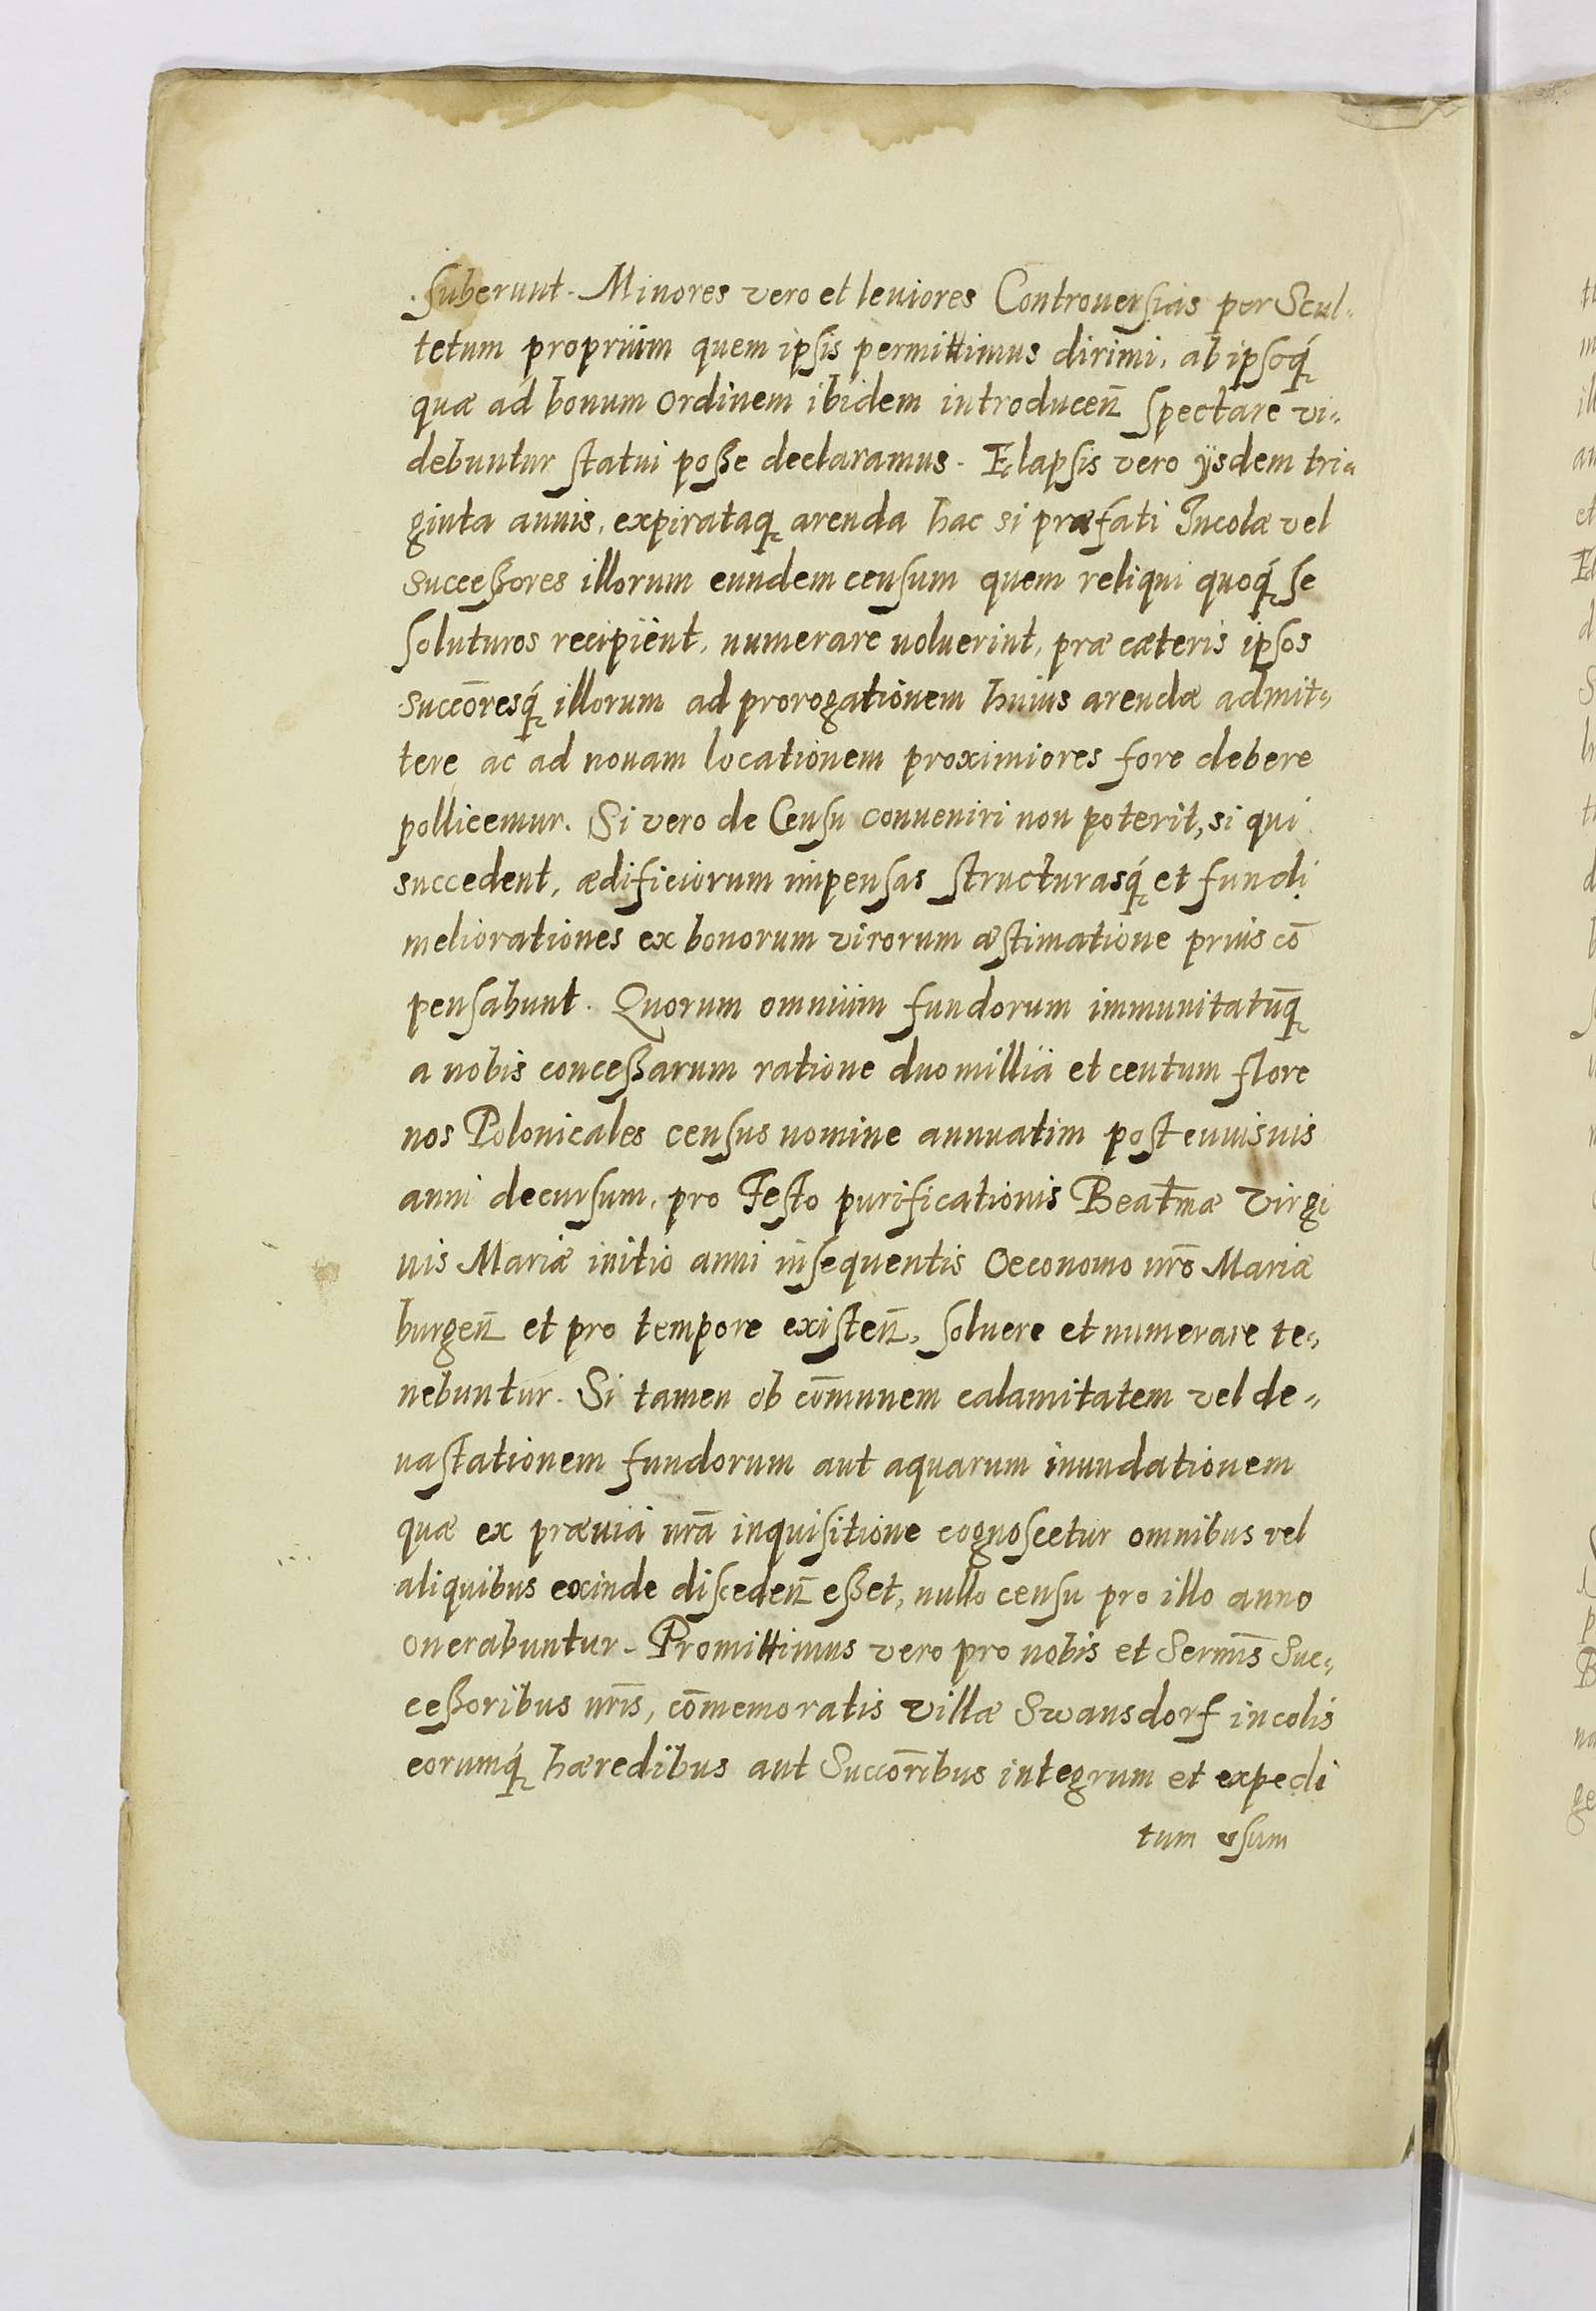 suberunt. Minores vero et leuiores Controuersias per Scul-
tetum proprium quem ipsis permittimus dirimi, ab ipsoq́
quæ ad bonum ordinem ibidem introducen̄ spectare vi-
debuntur statui poße declaramus. Elapsis vero ijsdem tri-
ginta annis, expirataq́ arenda hac si præfati Incolæ vel
succeßores illorum eundem censum quem reliqui quoq́ se
soluturos recipient, numerare uoluerint, præ cæteris ipsos
succōresq́ illorum ad prorogationem huius arendæ admit-
tere ac ad nouam locationem proximiores fore debere
pollicemur. Si vero de Censu conueniri non poterit, si qui
succedent, ædificiorum impensas structurasq́ et fundi
meliorationes ex bonorum virorum æstimatione prius cō
pensabunt. Quorum omnium fundorum immunitatūq́
a nobis conceßarum ratione duo millia et centum flore
nos Polonicales census nomine annuatim post euuisuis
anni decursum, pro Festo purificationis Beatm̄æ Virgi
nis Mariæ initio anni insequentis Oeconomo nr̄o Mariæ
burgen̄ et pro tempore existen̄, soluere et numerare te-
nebuntur. Si tamen ob cōmunem calamitatem vel de-
uastationem fundorum aut aquarum inundationem
quæ ex præuia nr̄a inquisitione cognoscetur omnibus vel
aliquibus exinde disceden̄ eßet, nullo censu pro illo anno
onerabuntur. Promittimus vero pro nobis et Serm̄is Suc-
ceßoribus nr̄is, cōmemoratis villæ Swansdorf incolis
eorumq́ hæredibus aut Succōribus integrum et expedi
tum vsum